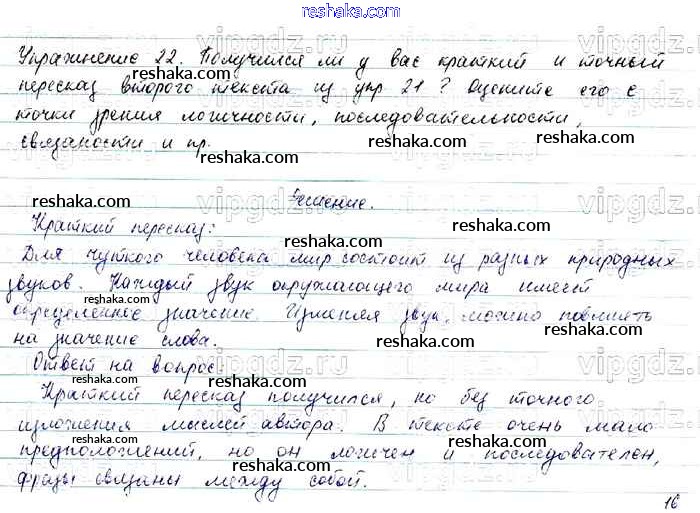 reshaka.com
Упражнение 22. Получился ли у вас краткий и точный
пересказ второго текста из упр 21? Оцените его с
точки зрения логичности, последовательности,
связаности и пр.
Решение.
Краткий пересказ:
Для чуткого человека мир состоит из разных природных
звуков. Каждый звук окружающего мира имеет
определенное значение. Изменяя звук, можно повлиять
на значение слова.
Ответ на вопрос:
Краткий пересказ получился, но без точного
изложения мыслей автора. В тексте очень мало
предположений, но он логичен и последователен,
фразы связаны между собой.
16